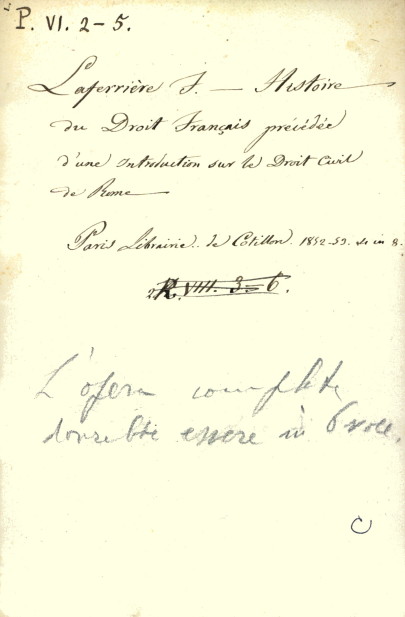 P. VI. 2-5.
Laferrière F. — Histoire
du Droit Français précédée
d'une Introduction sur le Droit Civil
de Rome
Paris Librairie de Cotillon. 1852-53. in 8.
R. VIII. 3-6.
L'opera completa
dovrebbe essere in 6 voll.
C